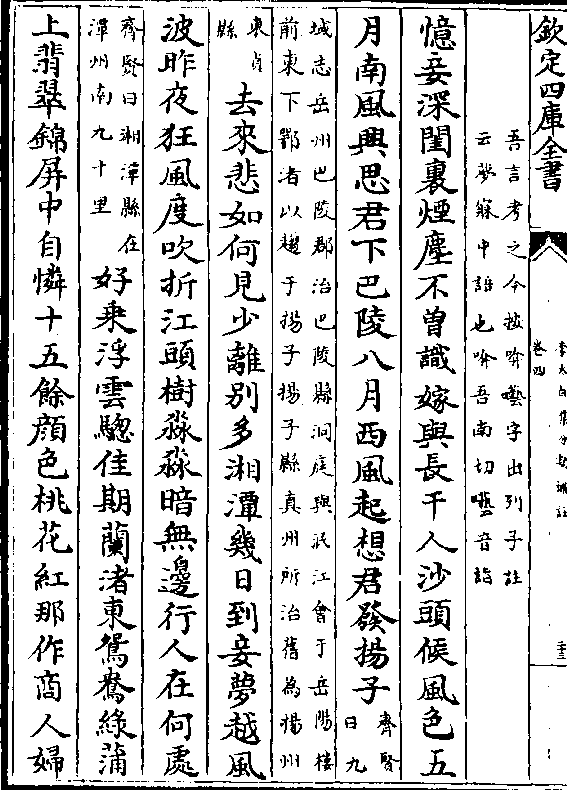 欽定四庫全書
卷四
吾言考之今按唫囈字出列子註
云夢寐中語也唫吾南切囈音詣
憶妾深閨裏煙塵不曾識嫁與長干人沙頭候風色五
月南風興思君下巴陵八月西風起想君發揚子齊賢曰九
域志岳州巴陵郡治巴陵縣洞庭與沅江會于岳陽樓
前東下鄂渚以趨于揚子揚子縣真州所治舊為揚州
東貞縣去來悲如何見少離別多湘潭幾日到妾夢越風
波昨夜狂風度吹折江頭樹淼淼暗無邊行人在何處
齊賢曰湘潭縣在潭州南九十里好乘浮雲驄佳期蘭渚東鴛鴦綠蒲
上翡翠錦屏中自憐十五餘顔色桃花紅那作商人婦